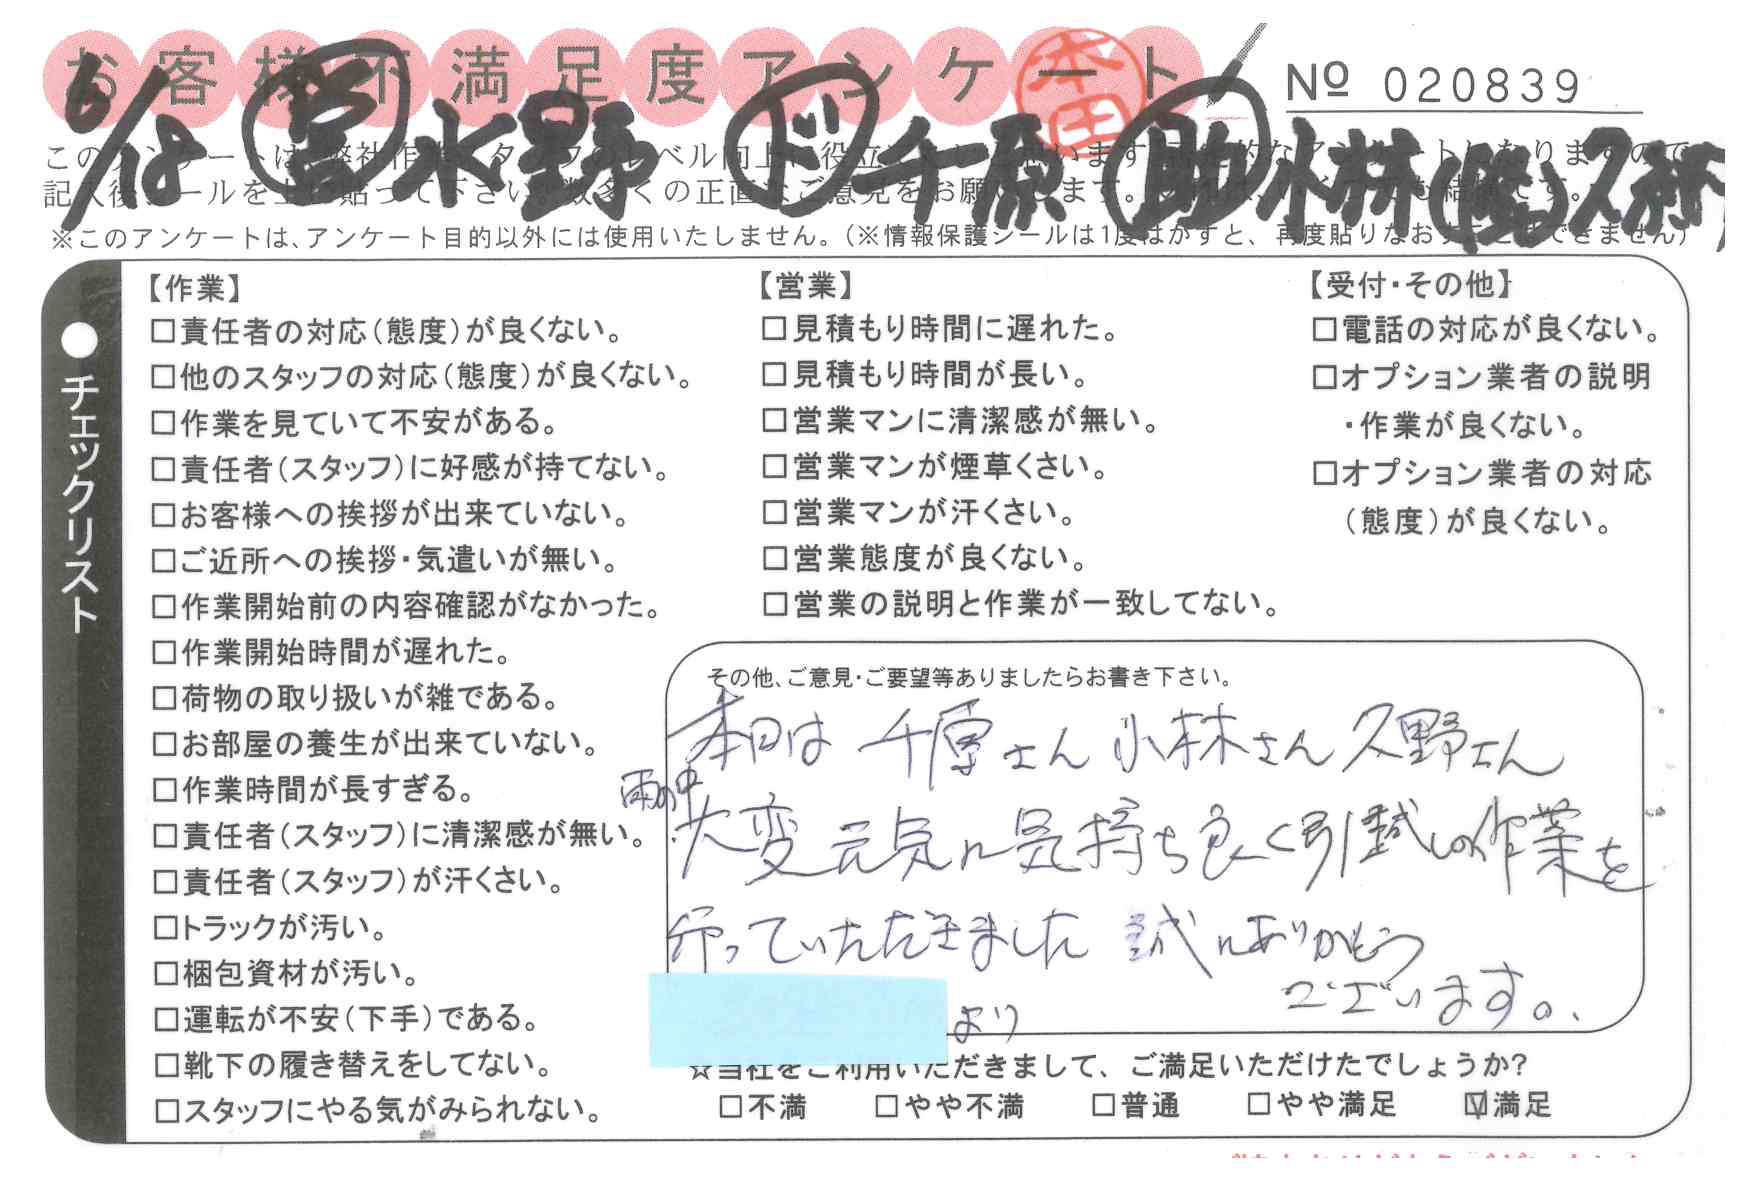 お客様不満足度アンケート
本田
№ 020839
6/12 営 水野 ド 千原 助 小林
このアンケートは
※このアンケートは、アンケート目的以外には使用いたしません。(※情報保護シールは1度はがすと、再度貼りなおすことはできません)
●チェックリスト
【作業】
□責任者の対応(態度)が良くない。
□他のスタッフの対応(態度)が良くない。
□作業を見ていて不安がある。
□責任者(スタッフ)に好感が持てない。
□お客様への挨拶が出来ていない。
□ご近所への挨拶・気遣いが無い。
□作業開始前の内容確認がなかった。
□作業開始時間が遅れた。
□荷物の取り扱いが雑である。
□お部屋の養生が出来ていない。
□作業時間が長すぎる。
□責任者(スタッフ)に清潔感が無い。
□責任者(スタッフ)が汗くさい。
□トラックが汚い。
□梱包資材が汚い。
□運転が不安(下手)である。
□靴下の履き替えをしてない。
□スタッフにやる気がみられない。
【営業】
□見積もり時間に遅れた。
□見積もり時間が長い。
□営業マンに清潔感が無い。
□営業マンが煙草くさい。
□営業マンが汗くさい。
□営業態度が良くない。
□営業の説明と作業が一致してない。
【受付・その他】
□電話の対応が良くない。
□オプション業者の説明
・作業が良くない。
□オプション業者の対応
(態度)が良くない。
その他、ご意見・ご要望等ありましたらお書き下さい。
本日は 千原さん 小林さん 久野さん
雨の中
大変元気に気持ち良く引越しの作業を
行っていただきました 誠にありがとう
ございます。
より
☆当社をご利用いただきまして、ご満足いただけたでしょうか?
□不満 □やや不満 □普通 □やや満足 ☑満足